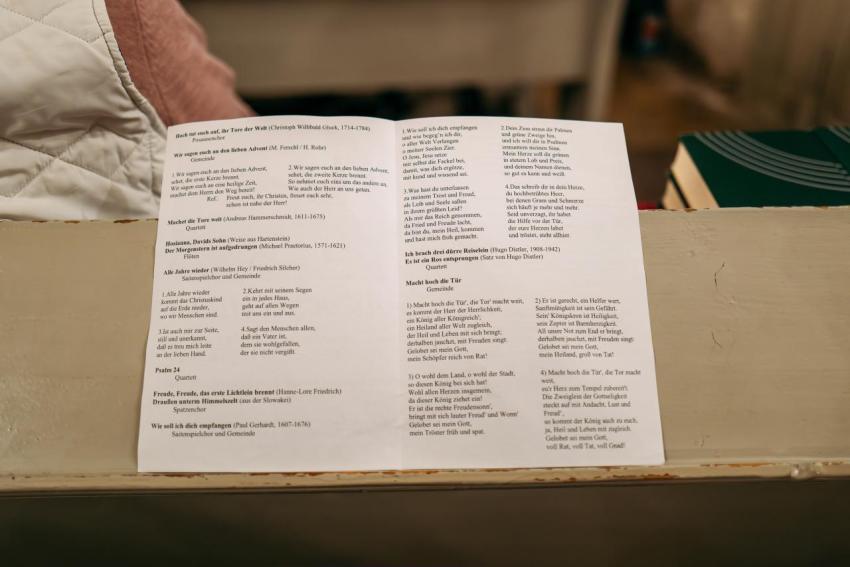 Hoch tut euch auf, ihr Tore der Welt (Christoph Willibald Gluck, 1714-1784)
Posaunenchor
Wir sagen euch an den lieben Advent (M. Ferschl / H. Rohr)
Gemeinde
1.Wir sagen euch an den lieben Advent,
sehet, die erste Kerze brennt.
Wir sagen euch an eine heilige Zeit,
machet dem Herrn den Weg bereit!
2.Wir sagen euch an den lieben Advent,
sehet, die zweite Kerze brennt.
So nehmet euch eins um das andere an,
Wie auch der Herr an uns getan.
Ref.: Freut euch, ihr Christen, freuet euch sehr,
schon ist nahe der Herr!
Machet die Tore weit (Andreas Hammerschmidt, 1611-1675)
Quartett
Hosianna, Davids Sohn (Weise aus Hartenstein)
Der Morgenstern ist aufgedrungen (Michael Praetorius, 1571-1621)
Flöten
Alle Jahre wieder (Wilhelm Hey / Friedrich Silcher)
Saitenspielchor und Gemeinde
1.Alle Jahre wieder
kommt das Christuskind
auf die Erde nieder,
wo wir Menschen sind.
2.Kehrt mit seinem Segen
ein in jedes Haus,
geht auf allen Wegen
mit uns ein und aus.
3.Ist auch mir zur Seite,
still und unerkannt,
daß es treu mich leite
an der lieben Hand.
4.Sagt den Menschen allen,
daß ein Vater ist,
dem sie wohlgefallen,
der sie nicht vergißt.
Psalm 24
Quartett
Freude, Freude, das erste Lichtlein brennt (Hanne-Lore Friedrich)
Draußen unterm Himmelszelt (aus der Slowakei)
Spatzenchor
Wie soll ich dich empfangen (Paul Gerhardt, 1607-1676)
Saitenspielchor und Gemeinde
1.Wie soll ich dich empfangen
und wie begeg'n ich dir,
o aller Welt Verlangen
o meiner Seelen Zier.
O Jesu, Jesu setze
mir selbst die Fackel bei,
damit, was dich ergötze,
mir kund und wissend sei.
2.Dein Zion streut dir Palmen
und grüne Zweige hin,
und ich will dir in Psalmen
ermuntern meinen Sinn.
Mein Herze soll dir grünen
in stetem Lob und Preis,
und deinem Namen dienen,
so gut es kann und weiß.
3.Was hast du unterlassen
zu meinem Trost und Freud,
als Leib und Seele saßen
in ihrem größten Leid?
Als mir das Reich genommen,
da Fried und Freude lacht,
da bist du, mein Heil, kommen
und hast mich froh gemacht.
4.Das schreib dir in dein Herze,
du hochbetrübtes Heer,
bei denen Gram und Schmerze
sich häuft je mehr und mehr.
Seid unverzagt, ihr habet
die Hilfe vor der Tür,
der eure Herzen labet
und tröstet, steht allhier.
Ich brach drei dürre Reiselein (Hugo Distler, 1908-1942)
Es ist ein Ros entsprungen (Satz von Hugo Distler)
Quartett
Macht hoch die Tür
Gemeinde
1) Macht hoch die Tür', die Tor' macht weit,
es kommt der Herr der Herrlichkeit,
ein König aller Königreich',
ein Heiland aller Welt zugleich,
der Heil und Leben mit sich bringt;
derhalben jauchzt, mit Freuden singt:
Gelobet sei mein Gott,
mein Schöpfer reich von Rat!
2) Er ist gerecht, ein Helfer wert,
Sanftmütigkeit ist sein Gefährt.
Sein' Königskron ist Heiligkeit,
sein Zepter ist Barmherzigkeit.
All unsre Not zum End er bringt,
derhalben jauchzt, mit Freuden singt:
Gelobet sei mein Gott,
mein Heiland, groß von Tat!
3) O wohl dem Land, o wohl der Stadt,
so diesen König bei sich hat!
Wohl allen Herzen insgemein,
da dieser König ziehet ein!
Er ist die rechte Freudensonn',
bringt mit sich lauter Freud' und Wonn'
Gelobet sei mein Gott,
mein Tröster früh und spat.
4) Macht hoch die Tür', die Tor macht
weit,
eu'r Herz zum Tempel zubereit't.
Die Zweiglein der Gottseligkeit
steckt auf mit Andacht, Lust und
Freud',
so kommt der König auch zu euch,
ja, Heil und Leben mit zugleich.
Gelobet sei mein Gott,
voll Rat, voll Tat, voll Gnad!